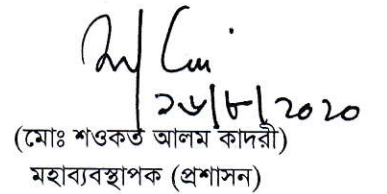 ২৬/৮/2020
(মোঃ শওকত আলম কাদরী)
মহাব্যবস্থাপক (প্রশাসন)